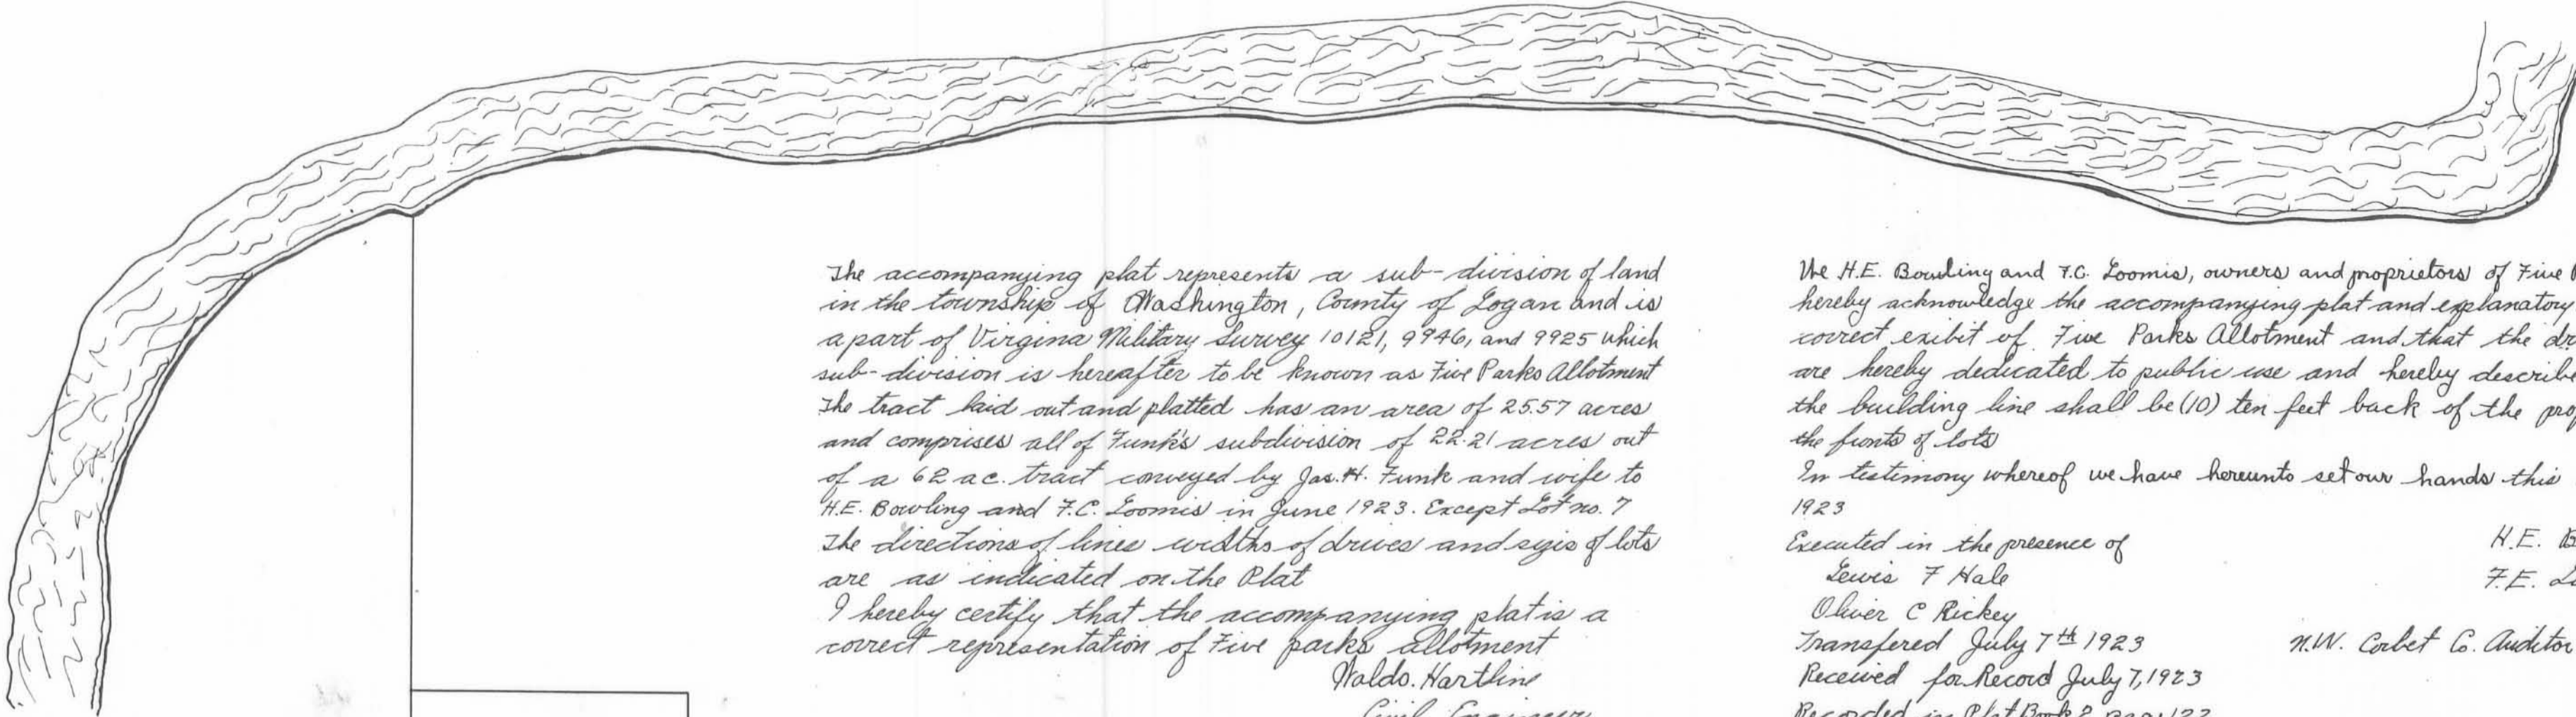 The accompanying plat represents a sub-division of land
in the township of Washington, County of Logan and is
a part of Virgina Military Survey 10121, 9946, and 9925 which
sub-division is hereafter to be known as Five Parks Allotment
The tract laid out and platted has an area of 25.57 acres
and comprises all of Funk's subdivision of 22.21 acres out
of a 62 ac. tract conveyed by Jas. H. Funk and wife to
H.E. Bowling and F.C. Loomis in June 1923. Except Lot no. 7
The directions of lines widths of drives and sizis of lots
are as indicated on the Plat
I hereby certify that the accompanying plat is a
correct representation of Five parks allotment
Waldo. Hartline
Civil Engineer
We H.E. Bowling and F.C. Loomis, owners and proprietors of Five
hereby acknowledge the accompanying plat and explanatory
correct exibit of Five Parks Allotment and that the
are hereby dedicated to public use and hereby describe
the building line shall be (10) ten feet back of the
the fronts of lots
In testimony whereof we have hereunto set our hands this
1923
Executed in the presence of
H.E.
Lewis F Hale
F.E.
Oliver C Rickey
Transfered July 7th 1923 N.W. Corbet Co. Auditor
Received for Record July 7, 1923
Recorded in Plat Book